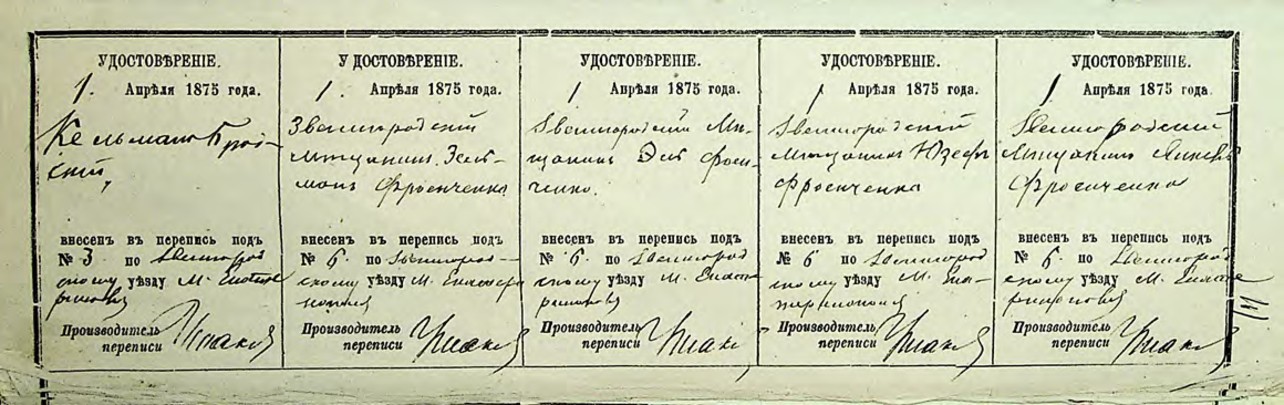 УДОСТОВѢРЕНІЕ.
1. Апрѣля 1875 года.
Кельманъ Брой-
скій
внесенъ въ перепись подъ
№ 3 по Звенигород
скому уѣзду М. Екате
Производитель
переписи
УДОСТОВѢРЕНІЕ.
1. Апрѣля 1875 года.
Звенигородскій
мѣщанинъ Зель-
манъ Фроенченко
внесенъ въ перепись подъ
№ 6. по Звенигород-
скому уѣзду М. Екатери
Производитель
переписи
УДОСТОВѢРЕНІЕ.
1 Апрѣля 1875 года.
Звенигородскій Мѣ-
щанинъ Эль Фроен-
ченко.
внесенъ въ перепись подъ
№ 6. по Звенигород
скому уѣзду М. Екате
Производитель
переписи
УДОСТОВѢРЕНІЕ.
1 Апрѣля 1875 года.
Звенигородскій
мѣщанинъ Юзефъ
Фроенченко
внесенъ въ перепись подъ
№ 6 по Звенигород
скому уѣзду М. Ека-
Производитель
переписи
УДОСТОВѢРЕНІЕ.
1 Апрѣля 1875 года.
Звенигородскій
Мѣщанинъ
Фроенченко
внесенъ въ перепись подъ
№ 6. по Звенигород
скому уѣзду М. Екате
Производитель
переписи